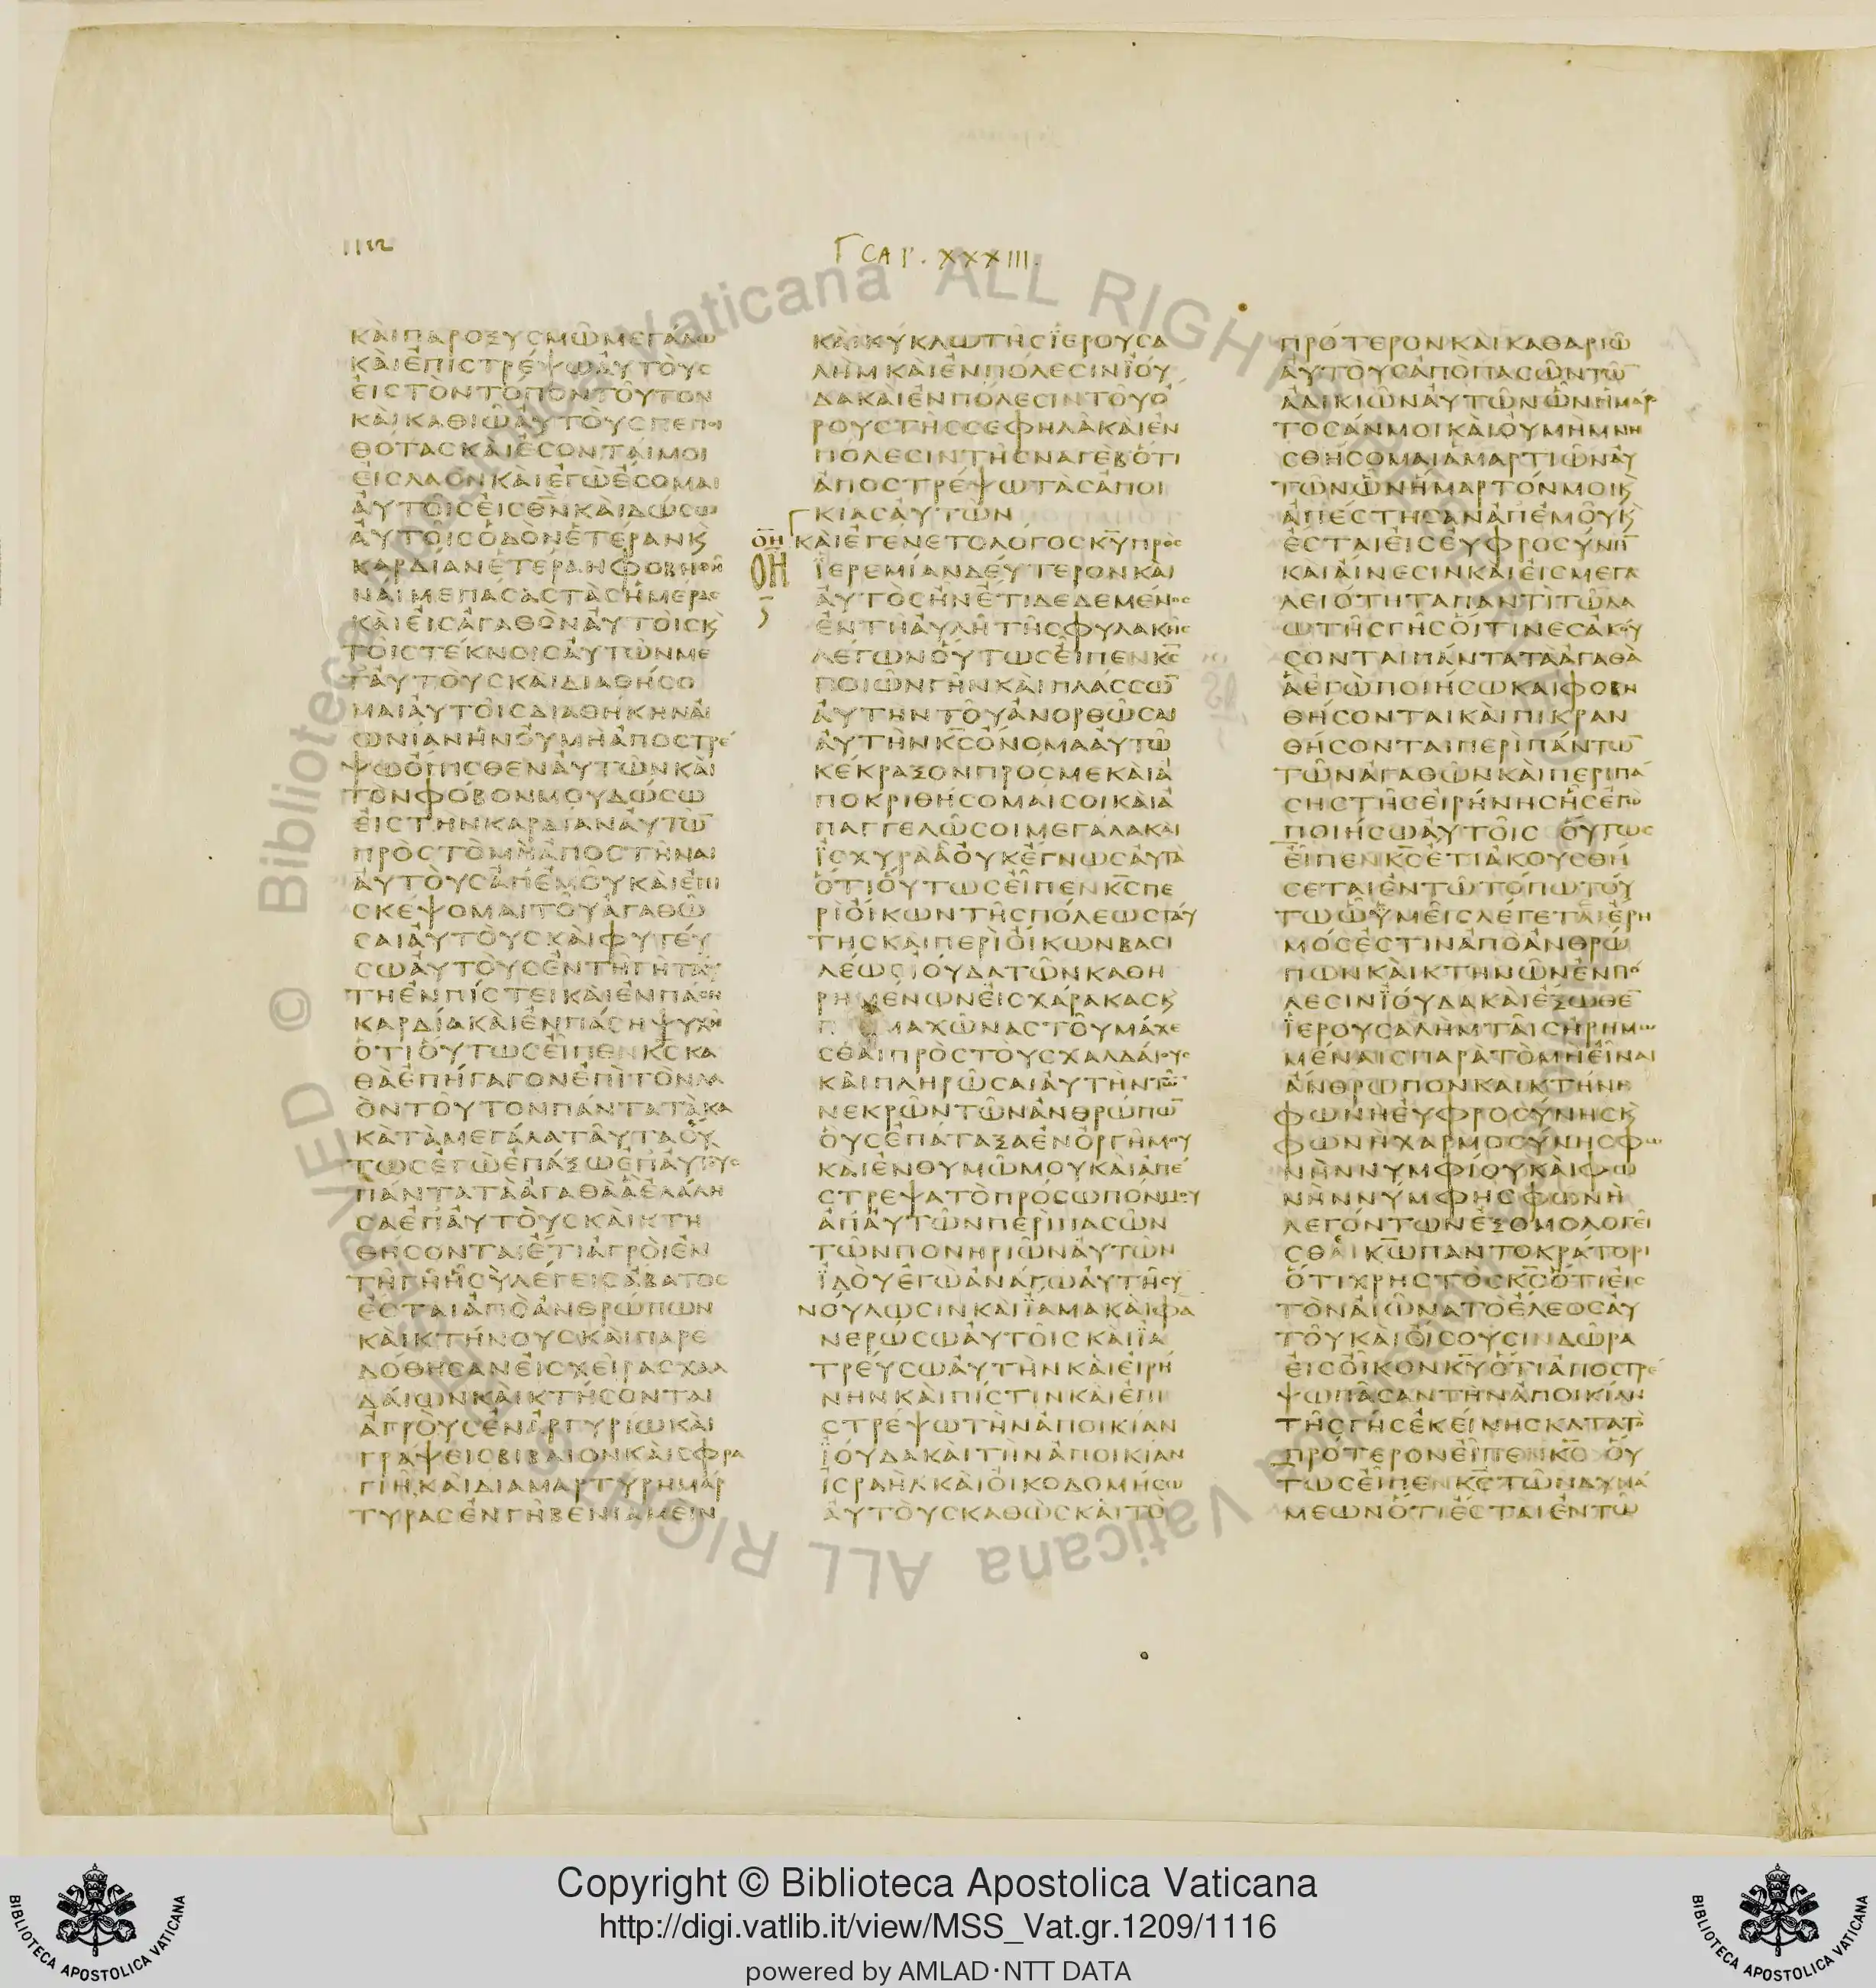 1112
Γ CAP. XXXIII.
ΚΑΙΠΑΡΟΞΥΣΜΩΜΕΓΑΛΩ
ΚΑΙΕΠΙΣΤΡΕΨΩΑΥΤΟΥΣ
ΕΙΣΤΟΝΤΟΠΟΝΤΟΥΤΟΝ
ΚΑΙΚΑΘΙΩΑΥΤΟΥΣΠΕΠΟΙ
ΘΟΤΑΣΚΑΙΕΣΟΝΤΑΙΜΟΙ
ΕΙΣΛΑΟΝΚΑΙΕΓΩΕΣΟΜΑΙ
ΑΥΤΟΙΣΕΙΣΘΝΚΑΙΔΩΣΩ
ΑΥΤΟΙΣΟΔΟΝΕΤΕΡΑΝΚ
ΚΑΡΔΙΑΝΕΤΕΡΑΝΦΟΒΗΘΗ
ΝΑΙΜΕΠΑΣΑΣΤΑΣΗΜΕΡΑΣ
ΚΑΙΕΙΣΑΓΑΘΟΝΑΥΤΟΙΣΚ
ΤΟΙΣΤΕΚΝΟΙΣΑΥΤΩΝΜΕ
ΤΑΥΤΟΥΣΚΑΙΔΙΑΘΗΣΟ
ΜΑΙΑΥΤΟΙΣΔΙΑΘΗΚΗΝΑΙ
ΩΝΙΑΝΗΝΟΥΜΗΑΠΟΣΤΡΕ
ΨΩΟΠΙΣΘΕΝΑΥΤΩΝΚΑΙ
ΤΟΝΦΟΒΟΝΜΟΥΔΩΣΩ
ΕΙΣΤΗΝΚΑΡΔΙΑΝΑΥΤΩ
ΠΡΟΣΤΟΜΗΑΠΟΣΤΗΝΑΙ
ΑΥΤΟΥΣΑΠΕΜΟΥΚΑΙΕΠΙ
ΣΚΕΨΟΜΑΙΤΟΥΑΓΑΘΩ
ΣΑΙΑΥΤΟΥΣΚΑΙΦΥΤΕΥ
ΣΩΑΥΤΟΥΣΕΝΤΗΓΗΤΑΥ
ΤΗΕΝΠΙΣΤΕΙΚΑΙΕΝΠΑΣΗ
ΚΑΡΔΙΑΚΑΙΕΝΠΑΣΗΨΥΧΗ
ΟΤΙΟΥΤΩΣΕΙΠΕΝΚΣΚΑ
ΘΑΕΠΗΓΑΓΟΝΕΠΙΤΟΝΛΑ
ΟΝΤΟΥΤΟΝΠΑΝΤΑΤΑΚΑ
ΚΑΤΑΜΕΓΑΛΑΤΑΥΤΑΟΥ
ΤΩΣΕΓΩΕΠΑΞΩΕΠΑΥΤΟΥΣ
ΠΑΝΤΑΤΑΑΓΑΘΑΑΕΛΑΛΗ
ΣΑΕΠΑΥΤΟΥΣΚΑΙΚΤΗ
ΘΗΣΟΝΤΑΙΕΤΙΑΓΡΟΙΕΝ
ΤΗΓΗΗΣΥΛΕΓΕΙΣΑΒΑΤΟΣ
ΕΣΤΑΙΑΠΟΑΝΘΡΩΠΩΝ
ΚΑΙΚΤΗΝΟΥΣΚΑΙΠΑΡΕ
ΔΟΘΗΣΑΝΕΙΣΧΕΙΡΑΣΧΑΛ
ΔΑΙΩΝΚΑΙΚΤΗΣΟΝΤΑΙ
ΑΓΡΟΥΣΕΝΑΡΓΥΡΙΩΚΑΙ
ΓΡΑΨΕΙΣΒΙΒΛΙΟΝΚΑΙΣΦΡΑ
ΓΙΗΚΑΙΔΙΑΜΑΡΤΥΡΗΜΑΡ
ΤΥΡΑΣΕΝΓΗΒΕΝΙΑΜΕΙΝ
ΚΑΙΚΥΚΛΩΤΗΣΙΕΡΟΥΣΑ
ΛΗΜΚΑΙΕΝΠΟΛΕΣΙΝΙΟΥ
ΔΑΚΑΙΕΝΠΟΛΕΣΙΝΤΟΥΟ
ΡΟΥΣΤΗΣΣΕΦΗΛΑΚΑΙΕΝ
ΠΟΛΕΣΙΝΤΗΣΝΑΓΕΒΟΤΙ
ΑΠΟΣΤΡΕΨΩΤΑΣΑΠΟΙ
ΚΙΑΣΑΥΤΩΝ
ΟΗ ΚΑΙΕΓΕΝΕΤΟΛΟΓΟΣΚΥΠΡΟΣ
ΟΗ ΙΕΡΕΜΙΑΝΔΕΥΤΕΡΟΝΚΑΙ
ΑΥΤΟΣΗΝΕΤΙΔΕΔΕΜΕΝΟΣ
ΕΝΤΗΑΥΛΗΤΗΣΦΥΛΑΚΗΣ
ΛΕΓΩΝΟΥΤΩΣΕΙΠΕΝΚΣ
ΠΟΙΩΝΓΗΝΚΑΙΠΛΑΣΣΩ
ΑΥΤΗΝΤΟΥΑΝΟΡΘΩΣΑΙ
ΑΥΤΗΝΚΣΟΝΟΜΑΑΥΤΩ
ΚΕΚΡΑΞΟΝΠΡΟΣΜΕΚΑΙΑ
ΠΟΚΡΙΘΗΣΟΜΑΙΣΟΙΚΑΙΑ
ΠΑΓΓΕΛΩΣΟΙΜΕΓΑΛΑΚΑΙ
ΙΣΧΥΡΑΑΟΥΚΕΓΝΩΣΑΥΤΑ
ΟΤΙΟΥΤΩΣΕΙΠΕΝΚΣΠΕ
ΡΙΟΙΚΩΝΤΗΣΠΟΛΕΩΣΤΑΥ
ΤΗΣΚΑΙΠΕΡΙΟΙΚΩΝΒΑΣΙ
ΛΕΩΣΙΟΥΔΑΤΩΝΚΑΘΗ
ΡΗΜΕΝΩΝΕΙΣΧΑΡΑΚΑΣΚ
ΠΜΑΧΩΝΑΣΤΟΥΜΑΧΕ
ΣΘΑΙΠΡΟΣΤΟΥΣΧΑΛΔΑΙΟΥΣ
ΚΑΙΠΛΗΡΩΣΑΙΑΥΤΗΝΤΩ
ΝΕΚΡΩΝΤΩΝΑΝΘΡΩΠΩ
ΟΥΣΕΠΑΤΑΞΑΕΝΟΡΓΗΜΟΥ
ΚΑΙΕΝΘΥΜΩΜΟΥΚΑΙΑΠΕ
ΣΤΡΕΨΑΤΟΠΡΟΣΩΠΟΝΜΟΥ
ΑΠΑΥΤΩΝΠΕΡΙΠΑΣΩΝ
ΤΩΝΠΟΝΗΡΙΩΝΑΥΤΩΝ
ΙΔΟΥΕΓΩΑΝΑΓΩΑΥΤΗΣΥ
ΝΟΥΛΩΣΙΝΚΑΙΙΑΜΑΚΑΙΦΑ
ΝΕΡΩΣΩΑΥΤΟΙΣΚΑΙΙΑ
ΤΡΕΥΣΩΑΥΤΗΝΚΑΙΕΙΡΗ
ΝΗΝΚΑΙΠΙΣΤΙΝΚΑΙΕΠΙ
ΣΤΡΕΨΩΤΗΝΑΠΟΙΚΙΑΝ
ΙΟΥΔΑΚΑΙΤΗΝΑΠΟΙΚΙΑΝ
ΙΣΡΑΗΛΚΑΙΟΙΚΟΔΟΜΗΣΩ
ΑΥΤΟΥΣΚΑΘΩΣΚΑΙΤΟ
ΠΡΟΤΕΡΟΝΚΑΙΚΑΘΑΡΙΩ
ΑΥΤΟΥΣΑΠΟΠΑΣΩΝΤΩ
ΑΔΙΚΙΩΝΑΥΤΩΝΩΝΗΜΑΡ
ΤΟΣΑΝΜΟΙΚΑΙΟΥΜΗΜΝΗ
ΣΘΗΣΟΜΑΙΑΜΑΡΤΙΩΝΑΥ
ΤΩΝΩΝΗΜΑΡΤΟΝΜΟΙΚ
ΑΠΕΣΤΗΣΑΝΑΠΕΜΟΥΚ
ΕΣΤΑΙΕΙΣΕΥΦΡΟΣΥΝΗ
ΚΑΙΑΙΝΕΣΙΝΚΑΙΕΙΣΜΕΓΑ
ΛΕΙΟΤΗΤΑΠΑΝΤΙΤΩΛΑ
ΩΤΗΣΓΗΣΟΙΤΙΝΕΣΑΚΟΥ
ΣΟΝΤΑΙΠΑΝΤΑΤΑΑΓΑΘΑ
ΑΕΓΩΠΟΙΗΣΩΚΑΙΦΟΒΗ
ΘΗΣΟΝΤΑΙΚΑΙΠΙΚΡΑΝ
ΘΗΣΟΝΤΑΙΠΕΡΙΠΑΝΤΩ
ΤΩΝΑΓΑΘΩΝΚΑΙΠΕΡΙΠΑ
ΣΗΣΤΗΣΕΙΡΗΝΗΣΗΣΕΓΩ
ΠΟΙΗΣΩΑΥΤΟΙΣ ΟΥΤΩΣ
ΕΙΠΕΝΚΣΕΤΙΑΚΟΥΣΘΗ
ΣΕΤΑΙΕΝΤΩΤΟΠΩΤΟΥ
ΤΩΩΥΜΕΙΣΛΕΓΕΤΑΙΕΡΗ
ΜΟΣΕΣΤΙΝΑΠΟΑΝΘΡΩ
ΠΩΝΚΑΙΚΤΗΝΩΝΕΝΠΟ
ΛΕΣΙΝΙΟΥΔΑΚΑΙΕΞΩΘΕ
ΙΕΡΟΥΣΑΛΗΜΤΑΙΣΗΡΗΜΩ
ΜΕΝΑΙΣΠΑΡΑΤΟΜΗΕΙΝΑΙ
ΑΝΘΡΩΠΟΝΚΑΙΚΤΗΝΗ
ΦΩΝΗΕΥΦΡΟΣΥΝΗΣΚ
ΦΩΝΗΧΑΡΜΟΣΥΝΗΣΦΩ
ΝΗΝΝΥΜΦΙΟΥΚΑΙΦΩ
ΝΗΝΝΥΜΦΗΣΦΩΝΗ
ΛΕΓΟΝΤΩΝΕΞΟΜΟΛΟΓΕΙ
ΣΘΑΙΚΩΠΑΝΤΟΚΡΑΤΟΡΙ
ΟΤΙΧΡΗΣΤΟΣΚΣΟΤΙΕΙΣ
ΤΟΝΑΙΩΝΑΤΟΕΛΕΟΣΑΥ
ΤΟΥΚΑΙΟΙΣΟΥΣΙΝΔΩΡΑ
ΕΙΣΟΙΚΟΝΚΥΟΤΙΑΠΟΣΤΡΕ
ΨΩΠΑΣΑΝΤΗΝΑΠΟΙΚΙΑΝ
ΤΗΣΓΗΣΕΚΕΙΝΗΣΚΑΤΑΤΟ
ΠΡΟΤΕΡΟΝΕΙΠΕΝΚΣ ΟΥ
ΤΩΣΕΙΠΕΝΚΣΤΩΝΔΥΝΑ
ΜΕΩΝΟΤΙΕΣΤΑΙΕΝΤΩ
© Biblioteca Apostolica Vaticana ALL RIGHTS RESERVED
Copyright © Biblioteca Apostolica Vaticana
http://digi.vatlib.it/view/MSS_Vat.gr.1209/1116
powered by AMLAD·NTT DATA
BIBLIOTECA APOSTOLICA VATICANA
BIBLIOTECA APOSTOLICA VATICANA